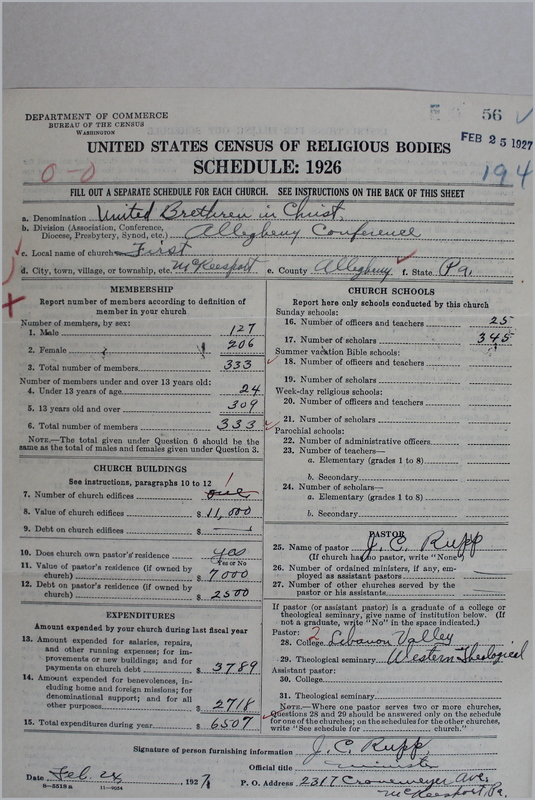 56
FEB 25 1927
194
0-0
DEPARTMENT OF COMMERCE
BUREAU OF THE CENSUS
WASHINGTON
UNITED STATES CENSUS OF RELIGIOUS BODIES
SCHEDULE: 1926
FILL OUT A SEPARATE SCHEDULE FOR EACH CHURCH. SEE INSTRUCTIONS ON THE BACK OF THIS SHEET
a. Denomination United Brethren in Christ,
b. Division (Association, Conference,
Diocese, Presbytery, Synod, etc.) Allegheny Conference
c. Local name of church First
d. City, town, village, or township, etc. McKeesport e. County Allegheny f. State Pa.
MEMBERSHIP
Report number of members according to definition of
member in your church
Number of members, by sex:
1. Male 127
2. Female 206
3. Total number of members 333
Number of members under and over 13 years old:
4. Under 13 years of age 24
5. 13 years old and over 309
6. Total number of members 333
NOTE.—The total given under Question 6 should be the
same as the total of males and females given under Question 3.
CHURCH BUILDINGS
See instructions, paragraphs 10 to 12
7. Number of church edifices one 1
8. Value of church edifices $ 11,000
9. Debt on church edifices $ —
10. Does church own pastor's residence yes
Yes or No
11. Value of pastor's residence (if owned by
church) $ 7000
12. Debt on pastor's residence (if owned by
church) $ 2500
EXPENDITURES
Amount expended by your church during last fiscal year
13. Amount expended for salaries, repairs,
and other running expenses; for im-
provements or new buildings; and for
payments on church debt $ 3789
14. Amount expended for benevolences, in-
cluding home and foreign missions; for
denominational support; and for all
other purposes $ 2718
15. Total expenditures during year $ 6507
CHURCH SCHOOLS
Report here only schools conducted by this church
Sunday schools:
16. Number of officers and teachers 25
17. Number of scholars 345
Summer vacation Bible schools:
18. Number of officers and teachers
19. Number of scholars
Week-day religious schools:
20. Number of officers and teachers
21. Number of scholars
Parochial schools:
22. Number of administrative officers
23. Number of teachers—
a. Elementary (grades 1 to 8)
b. Secondary
24. Number of scholars—
a. Elementary (grades 1 to 8)
b. Secondary
PASTOR
25. Name of pastor J. C. Rupp
(If church has no pastor, write "None")
26. Number of ordained ministers, if any, em-
ployed as assistant pastors
27. Number of other churches served by the
pastor or his assistants
If pastor (or assistant pastor) is a graduate of a college or
theological seminary, give name of institution below. (If
not a graduate, write "No" in the space indicated.)
Pastor: 2
28. College Lebanon Valley
29. Theological seminary Western Theological
Assistant pastor:
30. College
31. Theological seminary
NOTE.—Where one pastor serves two or more churches,
Questions 28 and 29 should be answered only on the schedule
for one of the churches; on the schedules for the other churches,
write "See schedule for church."
Signature of person furnishing information J. C. Rupp,
Official title minister
Date Feb. 24, 1927
P. O. Address 2317 Cronemeyer Ave,
McKeesport, Pa.
8-5518a 11-9554